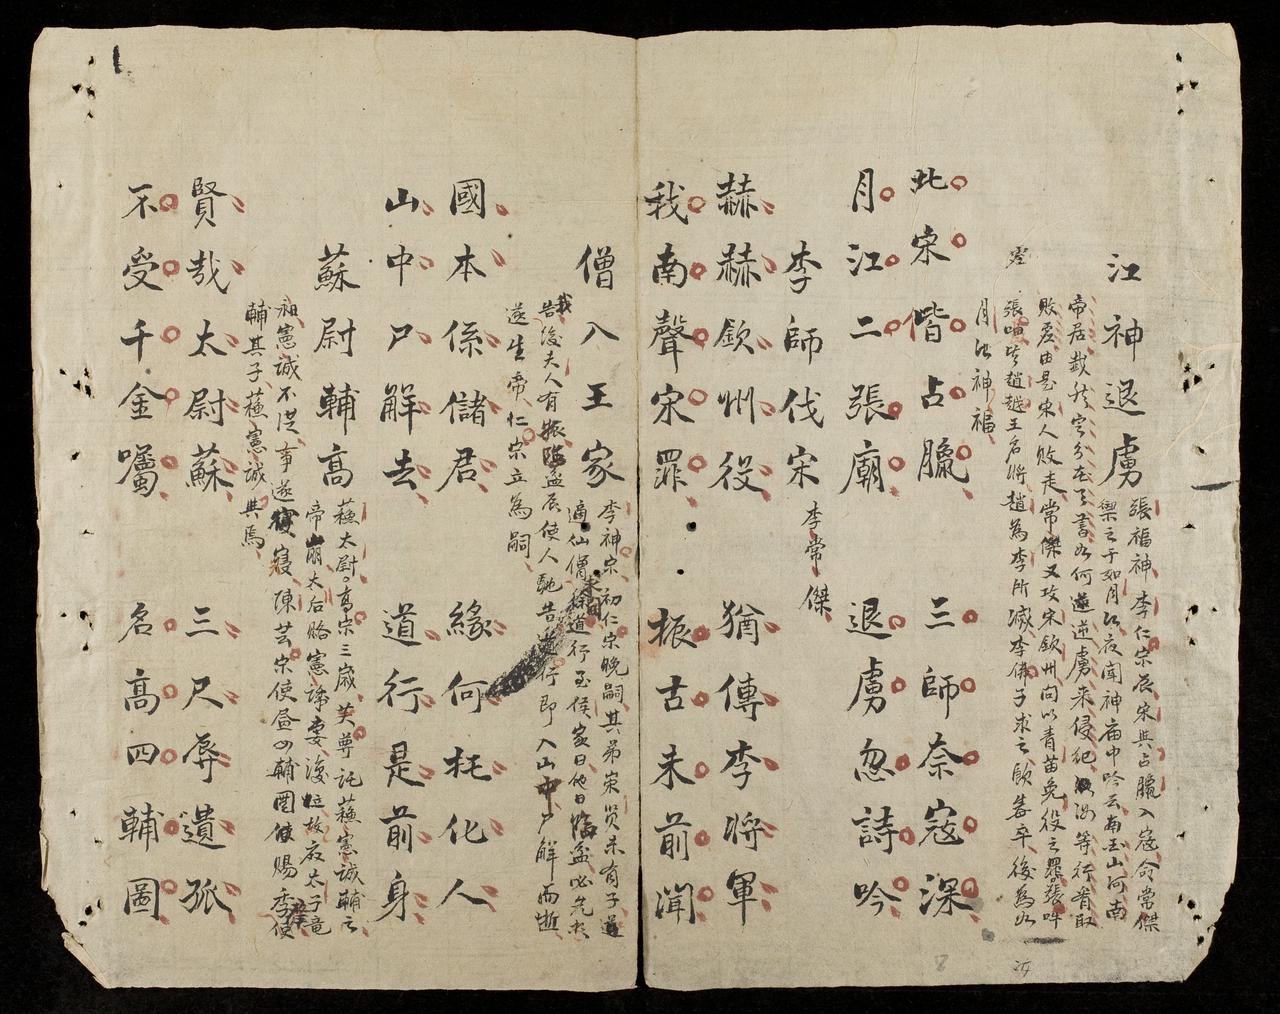 江神退虜
張福神李仁宗辰宋與占臘入寇命常傑
禦之于如月江夜聞神庙中吟云南國山河南
帝居截然定分在天書如何逆虜來侵犯汝等行看取
敗虛由是宋人敗走常傑又攻宋欽州问以青苗免役之罪張叫
張喝皆趙越王名將趙為李所滅李傳子求之飲毒卒後為如
月江神福
北宋偕占臘 三師奈寇深
月江二張廟 退虜忽詩吟
李師伐宋 李常傑
赫赫欽州役 猶傳李將軍
我南聲宋罪 振古未前聞
僧入王家
李神宗初仁宗晚嗣其弟崇贤未有子
適仙僧徐道行至侯家曰他日臨盆必先於
我告後夫人有娠臨盆辰使人馳告道行即入山中尸解而逝
遂生帝仁宗立為嗣
國本係儲君 緣何托化人
山中尸解去 道行是前身
蘇尉輔高
蘇太尉高宗三歲英尊託蘇憲誠輔之
帝崩太后賂憲誠妻復位故废太子竜
昶憲誠不從事遂寢寢陳芸宗使昼四輔圖賜季使
輔其子蘇憲誠與焉
賢哉太尉蘇 三尺辱遺孤
不受千金囑 名高四輔圖